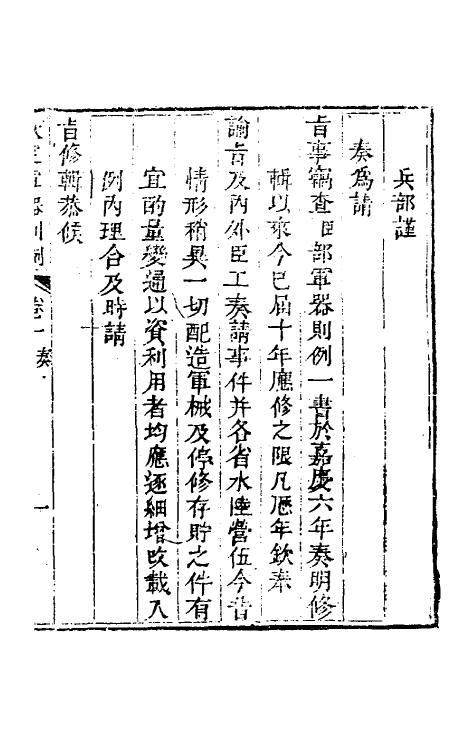 兵部謹
奏爲請
旨事竊查臣部軍器則例一書於嘉慶六年奏明修
輯以來今已届十年應修之限凡歷年欽奉
諭旨及內外臣工奏請事件并各省水陸營伍今昔
情形稍異一切配造軍械及停修存貯之件有
宜酌量變通以資利用者均應逐細增改載入
例內理合及時請
旨修輯恭候
軍器則例 卷一 奏 一